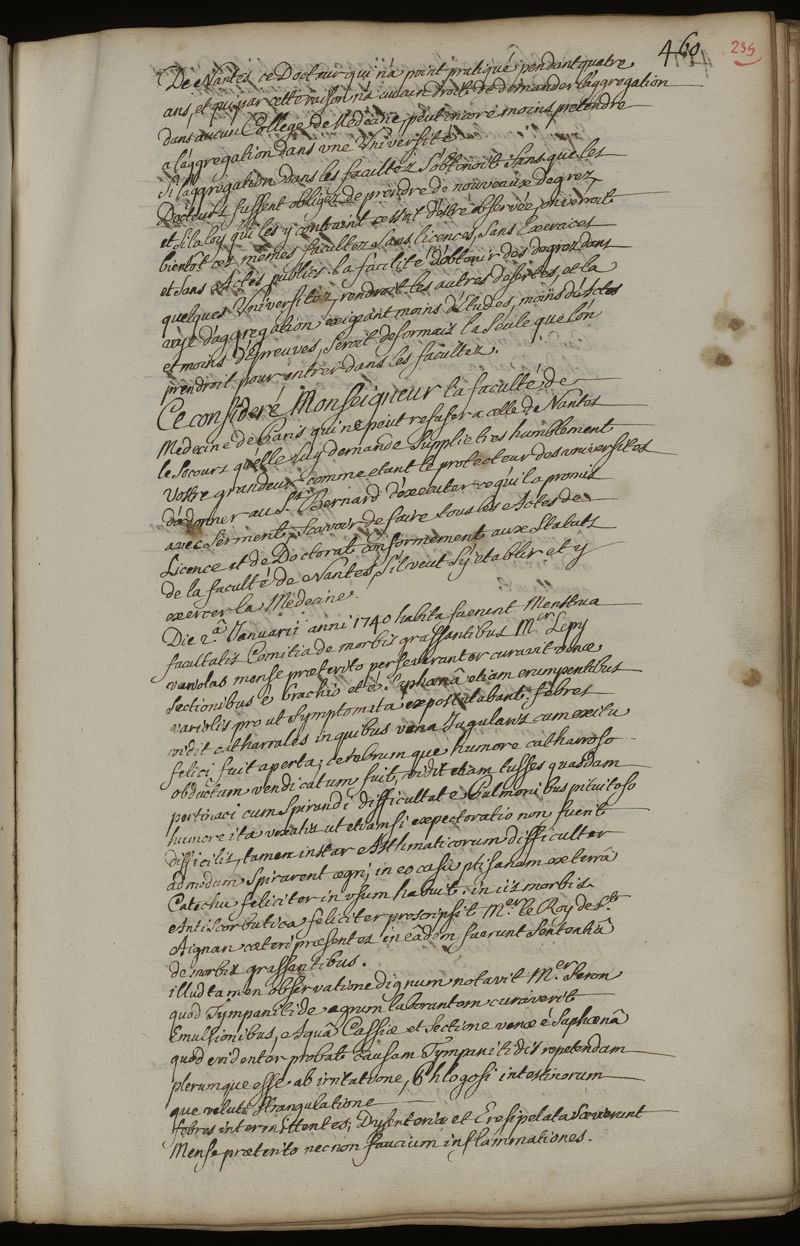 460 235
De Nantes, ce Docteur qui n'a point pratiqué pendant quatre
ans, et qui par cette raison n'a aucun droit de demander l'aggregation
dans aucun College de Medecine, peut encore moins pretendre
a l'aggregation dans une Université.
Si l'aggregation dans les facultez s'obtenoit sans que les
Docteurs fussent obligez de prendre de nouveaux degrez,
et si la loy qui les y contraint cessoit d'estre observée, on verroit
bientôt ces mêmes facultez sans licences, sans Exercices
et sans Actes publics. la facilité d'obtenir des degrez dans
quelques Universitez, rendroit les autres desertes, et la
voye d'aggregation exigeant moins d'Etudes, moins d'Actes
et moins d'Epreuves, seroit desormais la seule que l'on
prendroit pour entrer dans les facultez.
Ce consideré Monseigneur la faculté de
Medecine de Paris qui ne peut refuser a celle de Nantes
le secours qu'elle luy demande supplie tres humblement
Vostre grandeur comme etant le protecteur des universités
d'ordonner au Sr. Bernard d'executer ce qu'il a promis
avec serment, Scavoir de faire tous les Actes de
Licence et de Doctorat conformement aux Statuts
de la faculté de Nantes, s'il veut s'y etablir et y
exercer la Medecine.
Die 2.a Januarii anni 1740 habita fuerunt Menstrua
facultatis Comitia de morbis grassantibus Mer. Lepy
variolas mense præterito perseverantes curavit venæ
sectionibus è brachio et è Saphæna etiam erumpentibus
variolis pro ut Symptomata expostulabant. febres
vidit catharrales in quibus vena Jugularis cum exitu
felici fuit aperta, cerebrumque humore catharroso
obductum vendicatum fuit, vidit etiam tusses quasdam
pertinaci cum Spirandi difficultate Pulmonibus pituitoso
humore ita vexatis ut etiamsi expectoratio non fuerit
difficilis, tamen instar Asthmaticorum difficulter
admodum spirarent ægri, in eo casu ptisanam ex terrâ
Catechu feliciter in usum habuit. in iis morbis
Antiscorbutica feliciter proscripsit Mer. le Roy de St.
Aignan cæteri præsentes in eâdem fuerunt sententiâ
de morbis grassantibus.
illud tamen observatione dignum notavit Mer. Feron
quod Tympanitide ægrum laborantem curaverit
Emulsionibus, Aquâ Cassiæ et sectione venæ è Saphænâ
quod evidenter probat causam Tympanitidis repetendam
plerumque esse ab irritatione, Phlogosi intestinorum
que veluti strangulatione
febres intermittentes, Dysenteria et Eresipelata sævierunt
Mense præterito nec non faucium inflammationes.